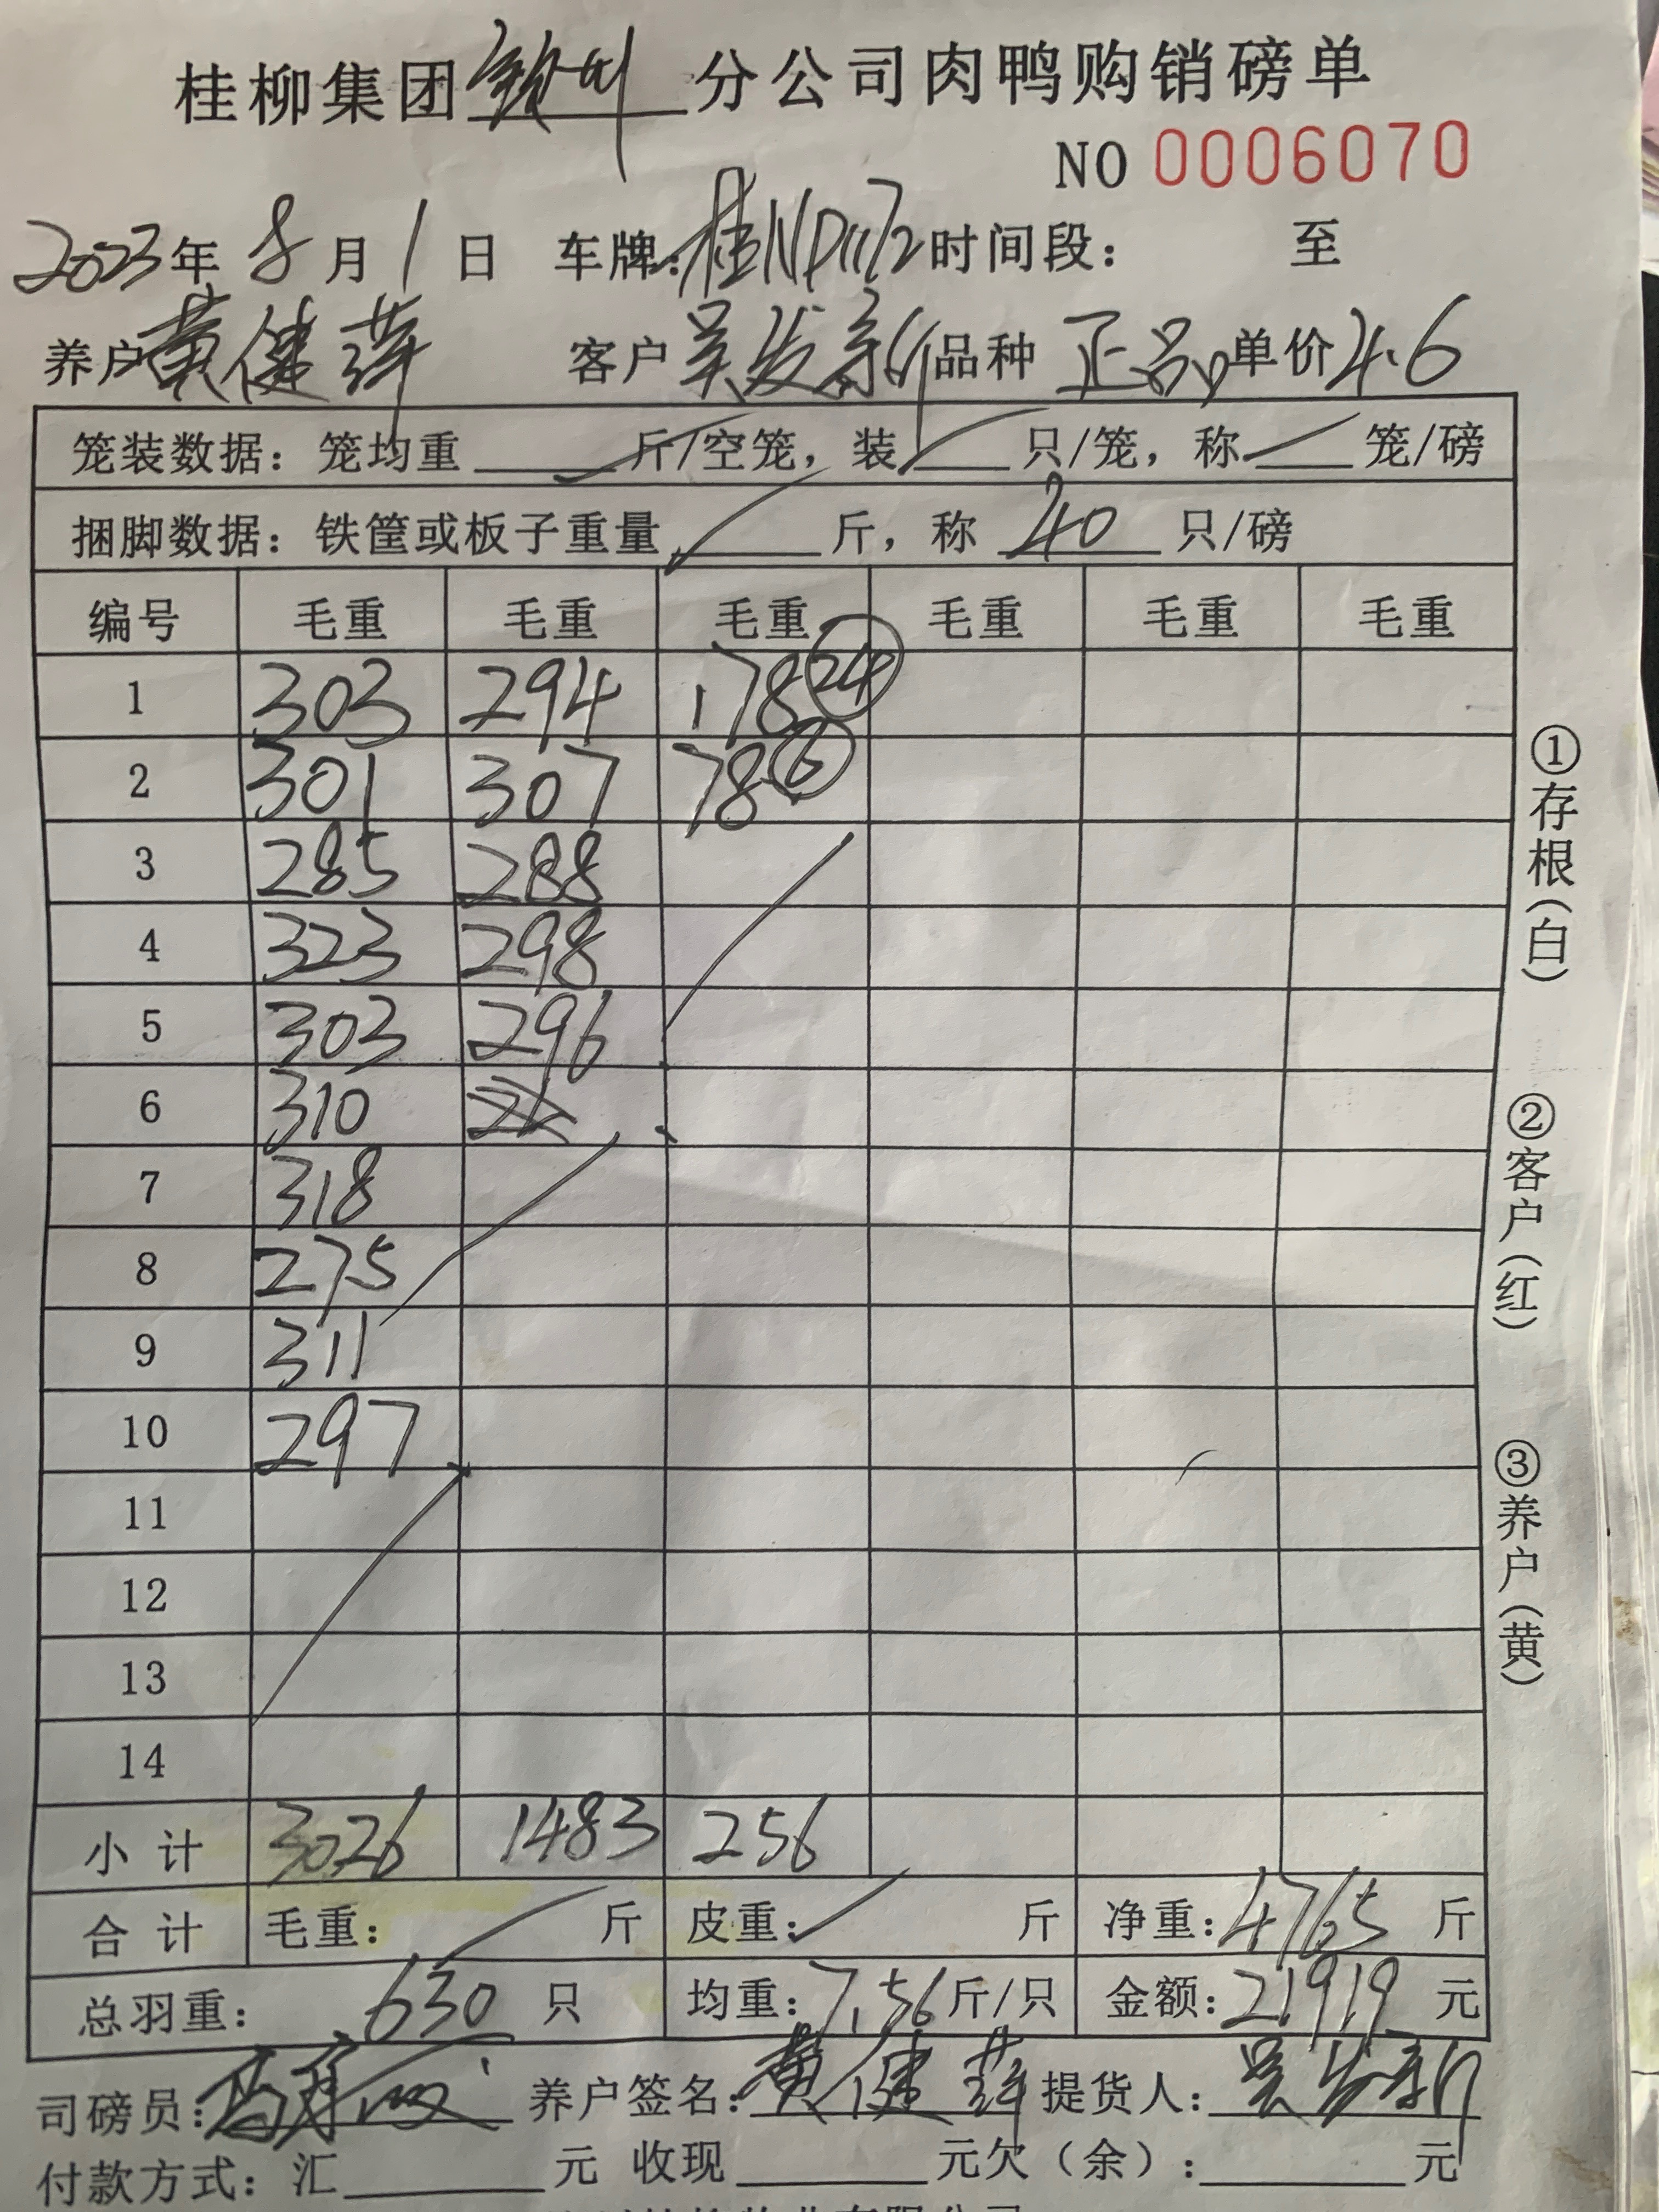 桂柳集团钦州分公司肉鸭购销磅单
NO 0006070
2023年8月1日 车牌:桂ND1172时间段: 至
养户黄健萍 客户吴发新品种 正品 单价4.6
笼装数据:笼均重 斤/空笼,装 只/笼,称 笼/磅
捆脚数据:铁筐或板子重量 斤,称 40 只/磅
编号 毛重 毛重 毛重 毛重 毛重 毛重
1 303 294 178 24
2 301 307 78 6
3 285 288
4 323 298
5 303 296
6 310
7 318
8 275
9 311
10 297
11
12
13
14
小计 3026 1483 256
合计 毛重: 斤 皮重: 斤 净重:4765 斤
总羽重: 630 只 均重:7.56斤/只 金额:21919 元
司磅员: 养户签名:黄健萍 提货人:吴发新
付款方式:汇 元 收现 元欠(余): 元
①存根(白)
②客户(红)
③养户(黄)